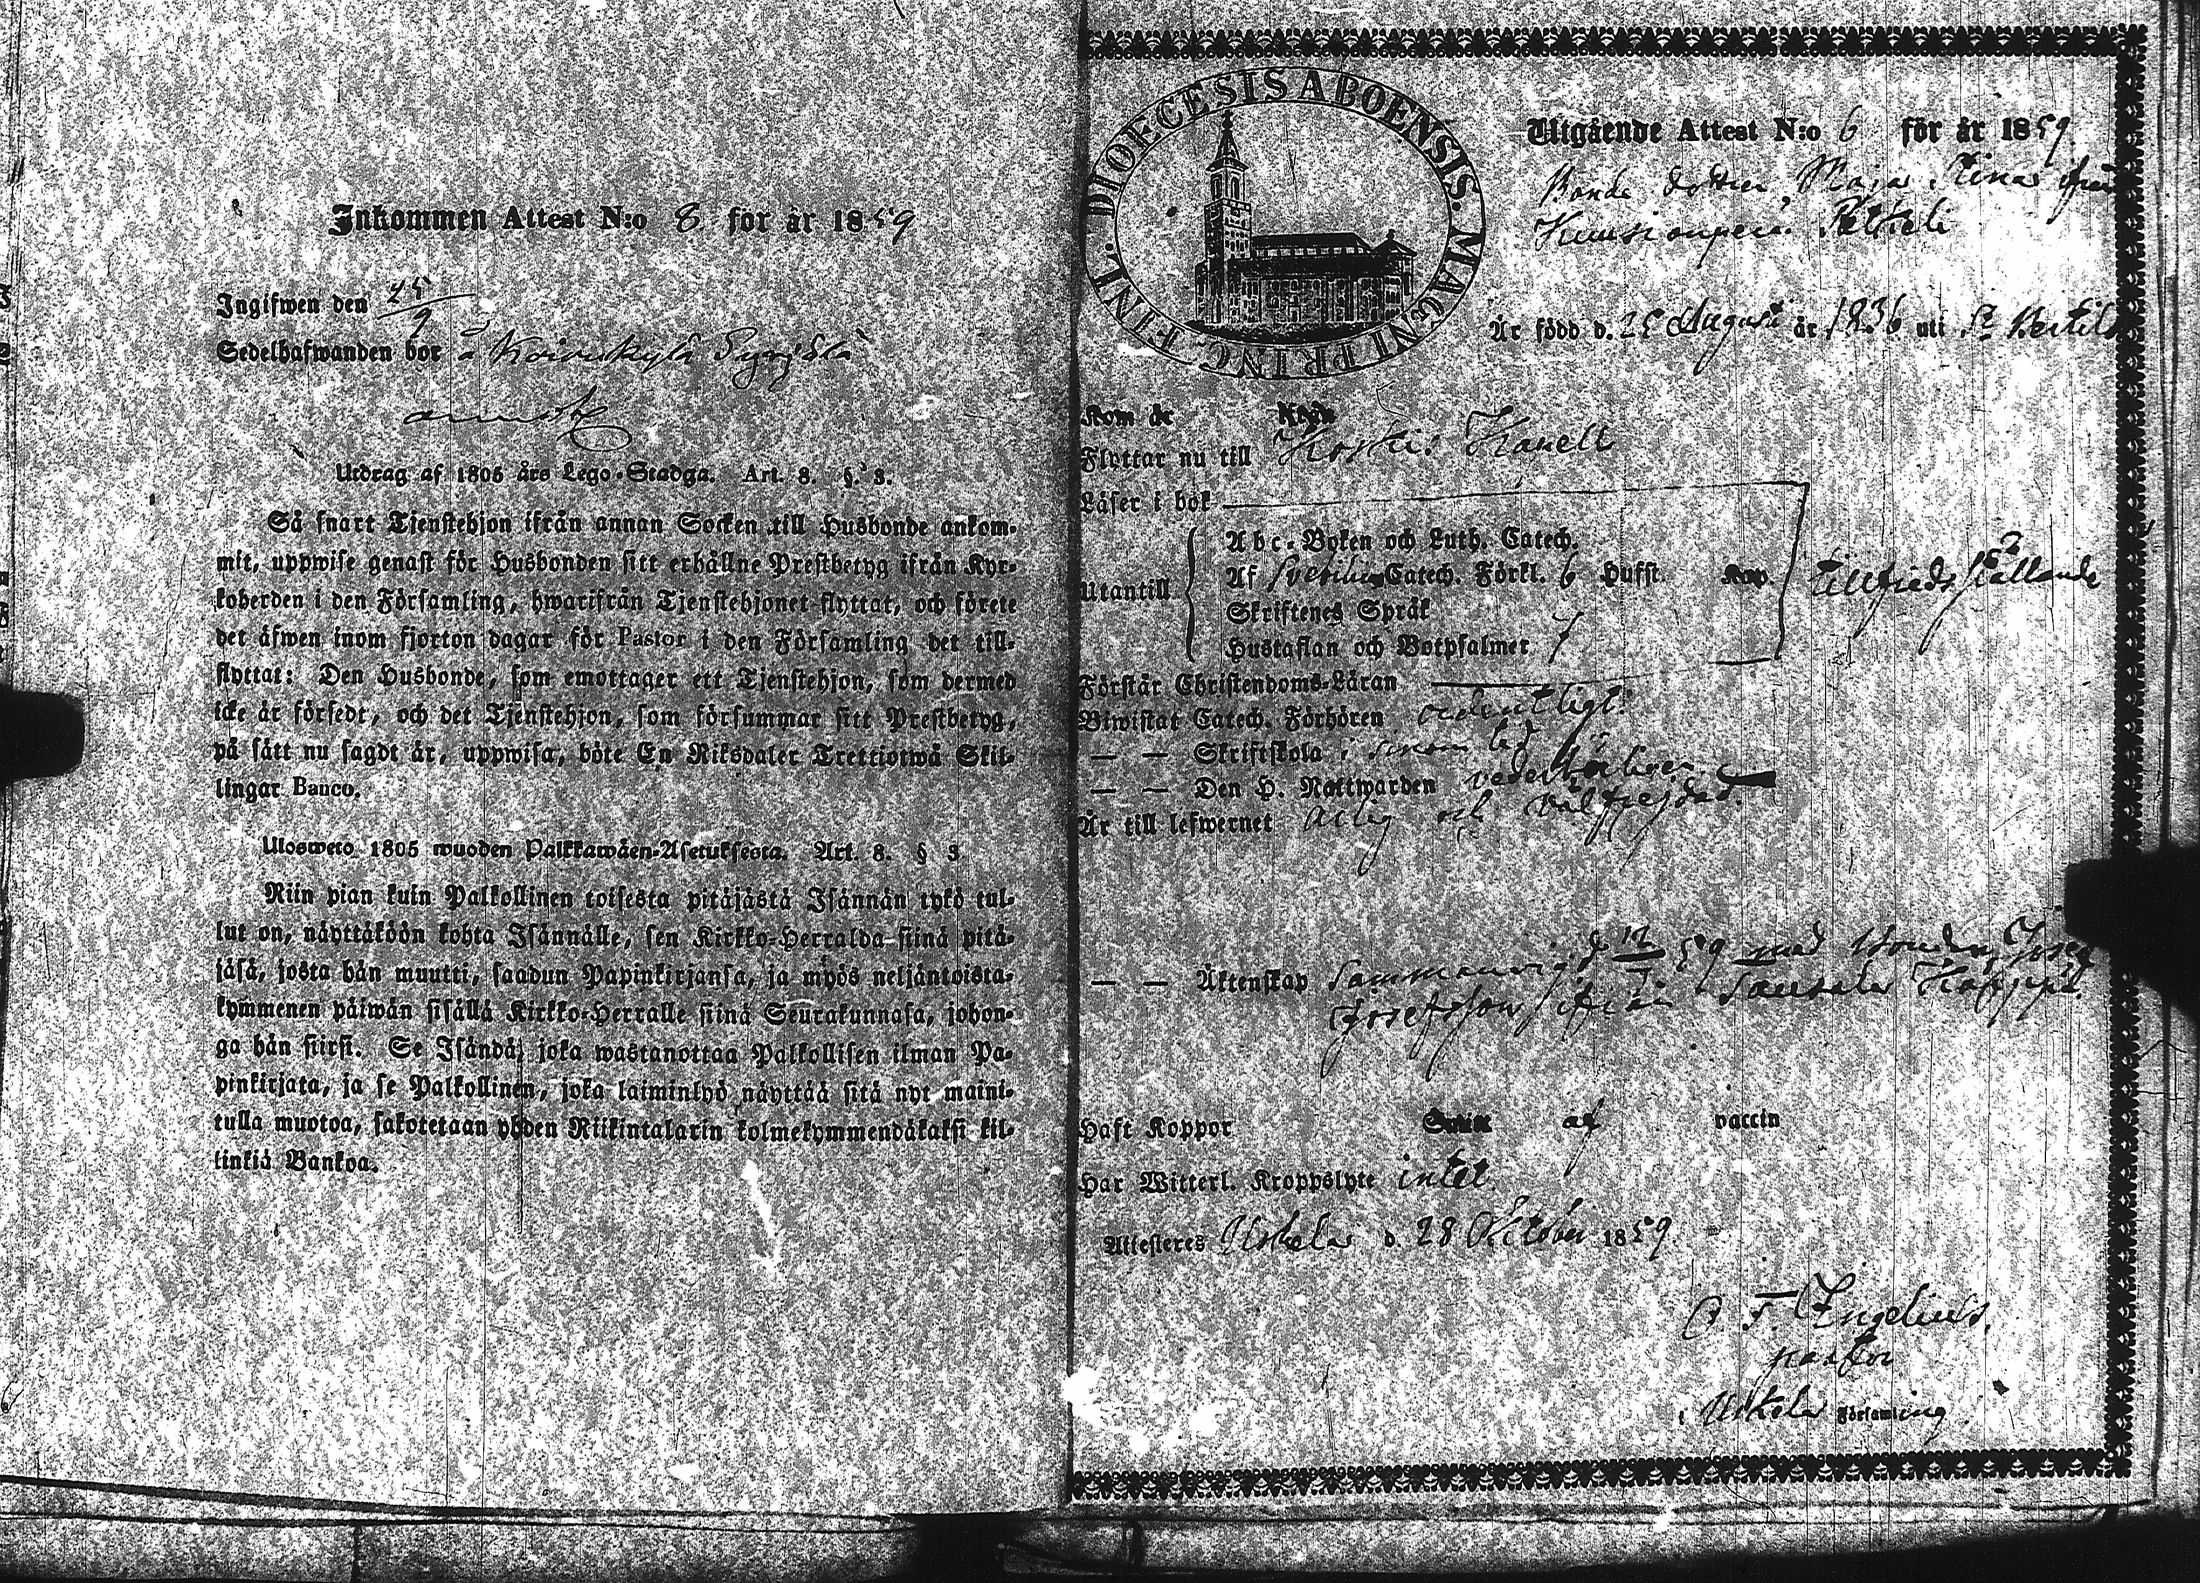 Inkommen Attest N:o 8 för år 1859
Ingifwen den 25/9
Sedelhafwanden bor å Koivukylä Syrjälä
Utdrag af 1805 års Lego-Stadga. Art. 8. §. 3.
Så snart Tjenstehjon ifrån annan Socken till Husbonde ankom-
mit, uppwise genast för Husbonden sitt erhållne Prestbetyg ifrån Kyr-
koherden i den Församling, hwarifrån Tjenstehjonet flyttat, och förete
det äfwen inom fjorton dagar för Pastor i den Församling det till-
flyttat: Den Husbonde, som emottager ett Tjenstehjon, som dermed
icke är försedt, och det Tjenstehjon, som försummar sitt Prestbetyg,
på sätt nu sagdt är, uppwisa, böte En Riksdaler Trettiotwå Skil-
lingar Banco.
Ulosweto 1805 wuoden Palkkawäen-Asetuksesta. Art. 8. § 3.
Niin pian kuin Palkollinen toisesta pitäjästä Isännän tykö tul-
lut on, näyttäköön kohta Isännälle, sen Kirkko-Herralda siinä pitä-
jäsä, josta hän muutti, saadun Papinkirjansa, ja myös neljäntoista-
kymmenen päiwän sisällä Kirkko-Herralle siinä Seurakunnasa, johon-
ga hän siirsi. Se Isändä, joka wastanottaa Palkollisen ilman Pa-
pinkirjata, ja se Palkollinen, joka laiminlyö näyttää sitä nyt maini-
tulla muotoa, sakotetaan yhden Riikintalarin kolmekymmendäkaksi kil-
linkiä Bankoa.
FINL. DIOECESIS ABOENSIS. MAGNI PRINC.
Utgående Attest N:o 6 för år 1859
Bonde dottren Maja Stina ifrån
Kuusionperä
Är född d. 25 Augusti år 1836 uti St Bertils
Kom de
Flyttar nu till Koskis Kapell
Läser i bok
Utantill
Abc-Boken och Luth. Catech.
Af Svebilii Catech. Förkl. 6 Hufst. Kap.
Skriftenes Språk
Hustaflan och Botpsalmer 7
tillfredsställande
Förstår Christendoms-Läran
Biwistat Catech. Förhören ordentligt
— — Skriftskola i sinom tid
— — Den H. Nattwarden vederbörligen
Är till lefwernet ärlig och välfrejdad.
— — Äktenskap Sammanvigd d. 59 med Bonden Josef
Josefsson ifrån Sauvala
Haft Koppor af vaccin
Har Witterl. Kroppslyte intet
Attesteres Uskela d. 28 October 1859
Engelius,
pastor
i Uskela Församling